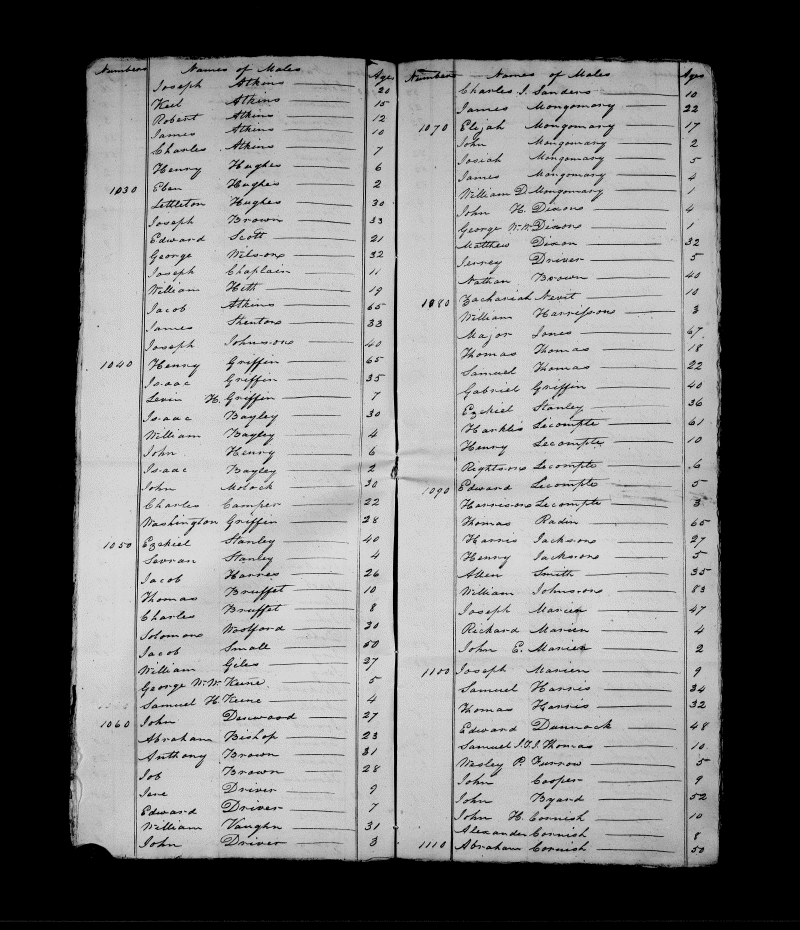 Numbers Names of Males Ages
Joseph Atkins 20
Keel Atkins 15
Robert Atkins 12
James Atkins 10
Charles Atkins 7
Henry Hughes 6
1030 Eben Hughes 2
Lettleton Hughes 30
Joseph Brown 33
Edward Scott 21
George Wilsons 32
Joseph Chaplain 11
William Heth 19
Jacob Atkins 65
James Stentons 33
Joseph Johnsons 40
1040 Henry Griffin 65
Isaac Griffin 35
Levin H. Griffin 7
Isaac Bayley 30
William Bayley 4
John Henry 6
Isaac Bayley 2
John Molock 30
Charles Camper 22
Washington Griffin 28
1050 Ezekiel Stanley 40
Stanley 4
Jacob Harres 26
Thomas Bruffet 10
Charles Bruffet 8
Solomons Woolford 30
Jacob Small 50
William Giles 27
George W. W. Keene 5
Samuel H. Keene 4
1060 John Denwood 27
Abraham Bishop 23
Anthony Brown 31
Job Brown 28
Driver 9
Edward Driver 7
William Vaughn 31
John Driver 3
Numbers Names of Males Ages
Charles J. Sanders 10
James Mongomary 22
1070 Elijah Mongomary 17
John Mongomary 2
Josiah Mongomary 5
James Mongomary 4
William D. Mongomary 1
John H. Dixons 4
George W. W. Dixons 1
Matthew Dixon 32
Jerrey Driver 5
Nathan Brown 40
1080 Zachariah Nevit 10
William Harrissons 3
Major Jones 67
Thomas Thomas 18
Samuel Thomas 22
Gabriel Griffin 40
Ezekiel Stanley 36
Harkles Lecompte 61
Henry Lecompte 10
Rightsons Lecompte 6
1090 Edward Lecompte 5
Harrisons Lecompte 3
Thomas Radin 65
Harris Jacksons 27
Henry Jacksons 5
Allen Smith 35
William Johnsons 83
Joseph Marien 47
Richard Marien 4
John E. Marien 2
1100 Joseph Marien 9
Samuel Harris 34
Thomas Harris 32
Edward Dunnock 48
Samuel J. T. J. Thomas 10
Wesley P. Furrow 5
John Cooper 9
John Byard 52
John H. Cornish 10
Alexander Cornish 8
1110 Abraham Cornish 50